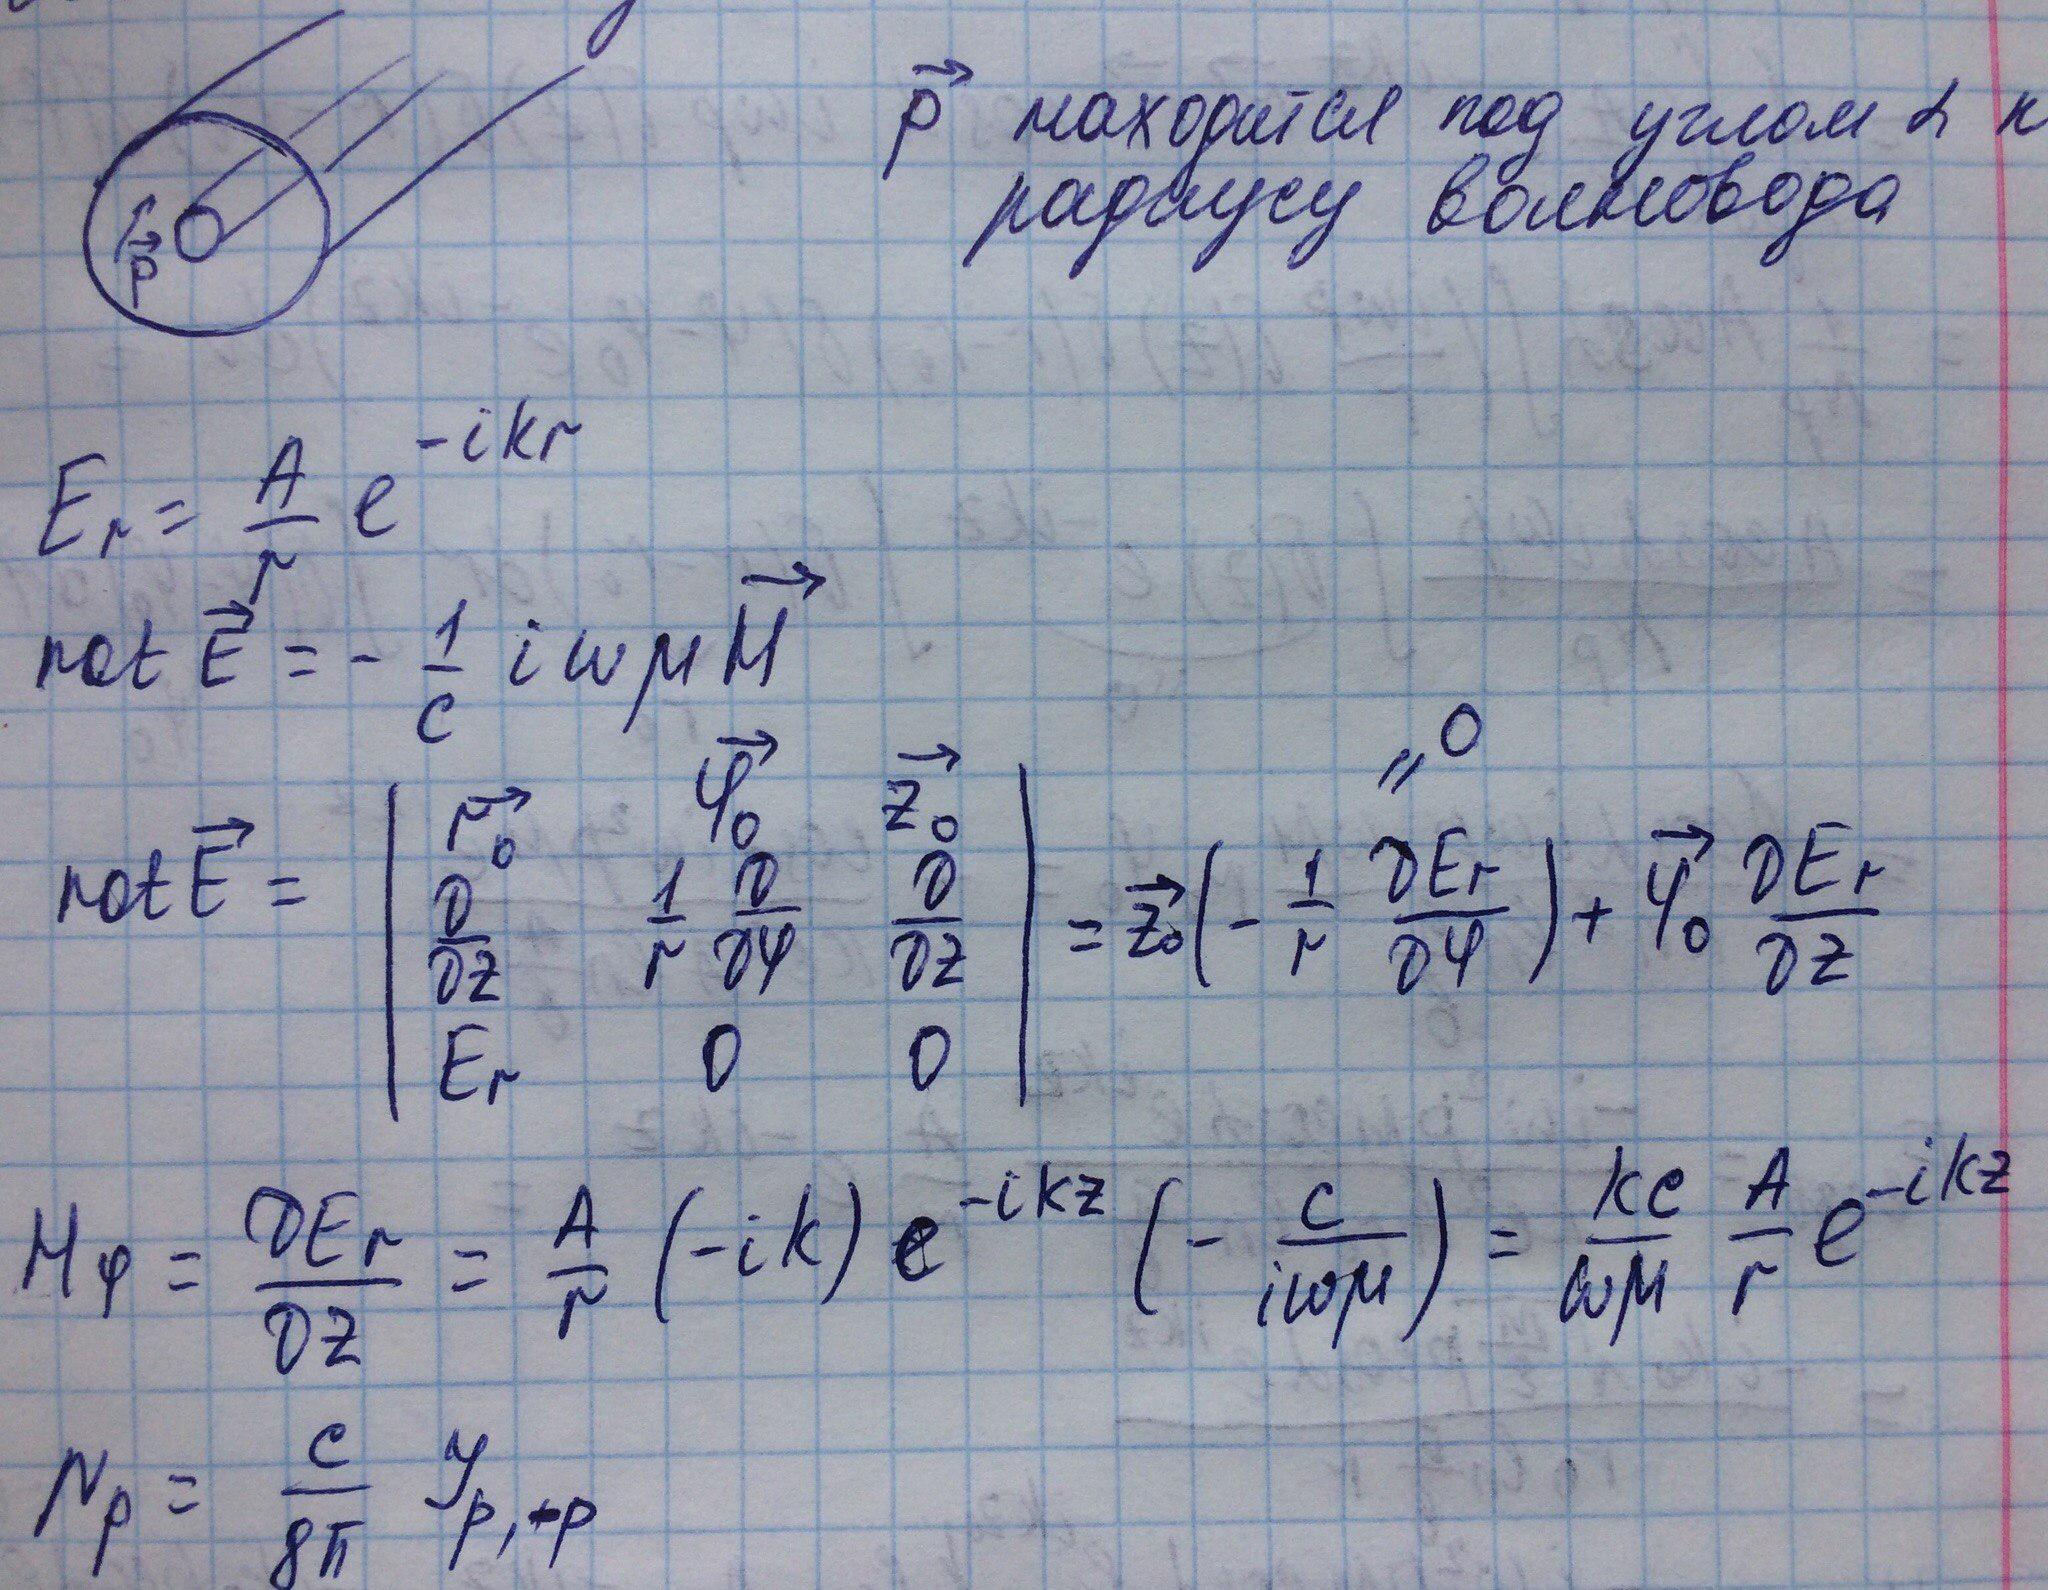 p⃗ находится под углом α к
радиусу волновода
p⃗
E_r = A/r e^{-ikr}
rot E⃗ = - 1/c iωμH⃗
rot E⃗ = | r⃗₀ φ⃗₀ z⃗₀ |
| ∂/∂z 1/r ∂/∂φ ∂/∂z | = z⃗₀(- 1/r ∂E_r/∂φ) + φ⃗₀ ∂E_r/∂z
"0
| E_r 0 0 |
H_φ = ∂E_r/∂z = A/r (-ik) e^{-ikz} (- c/iωμ) = kc/ωμ A/r e^{-ikz}
N_p = c/8π 𝒴_{p,-p}